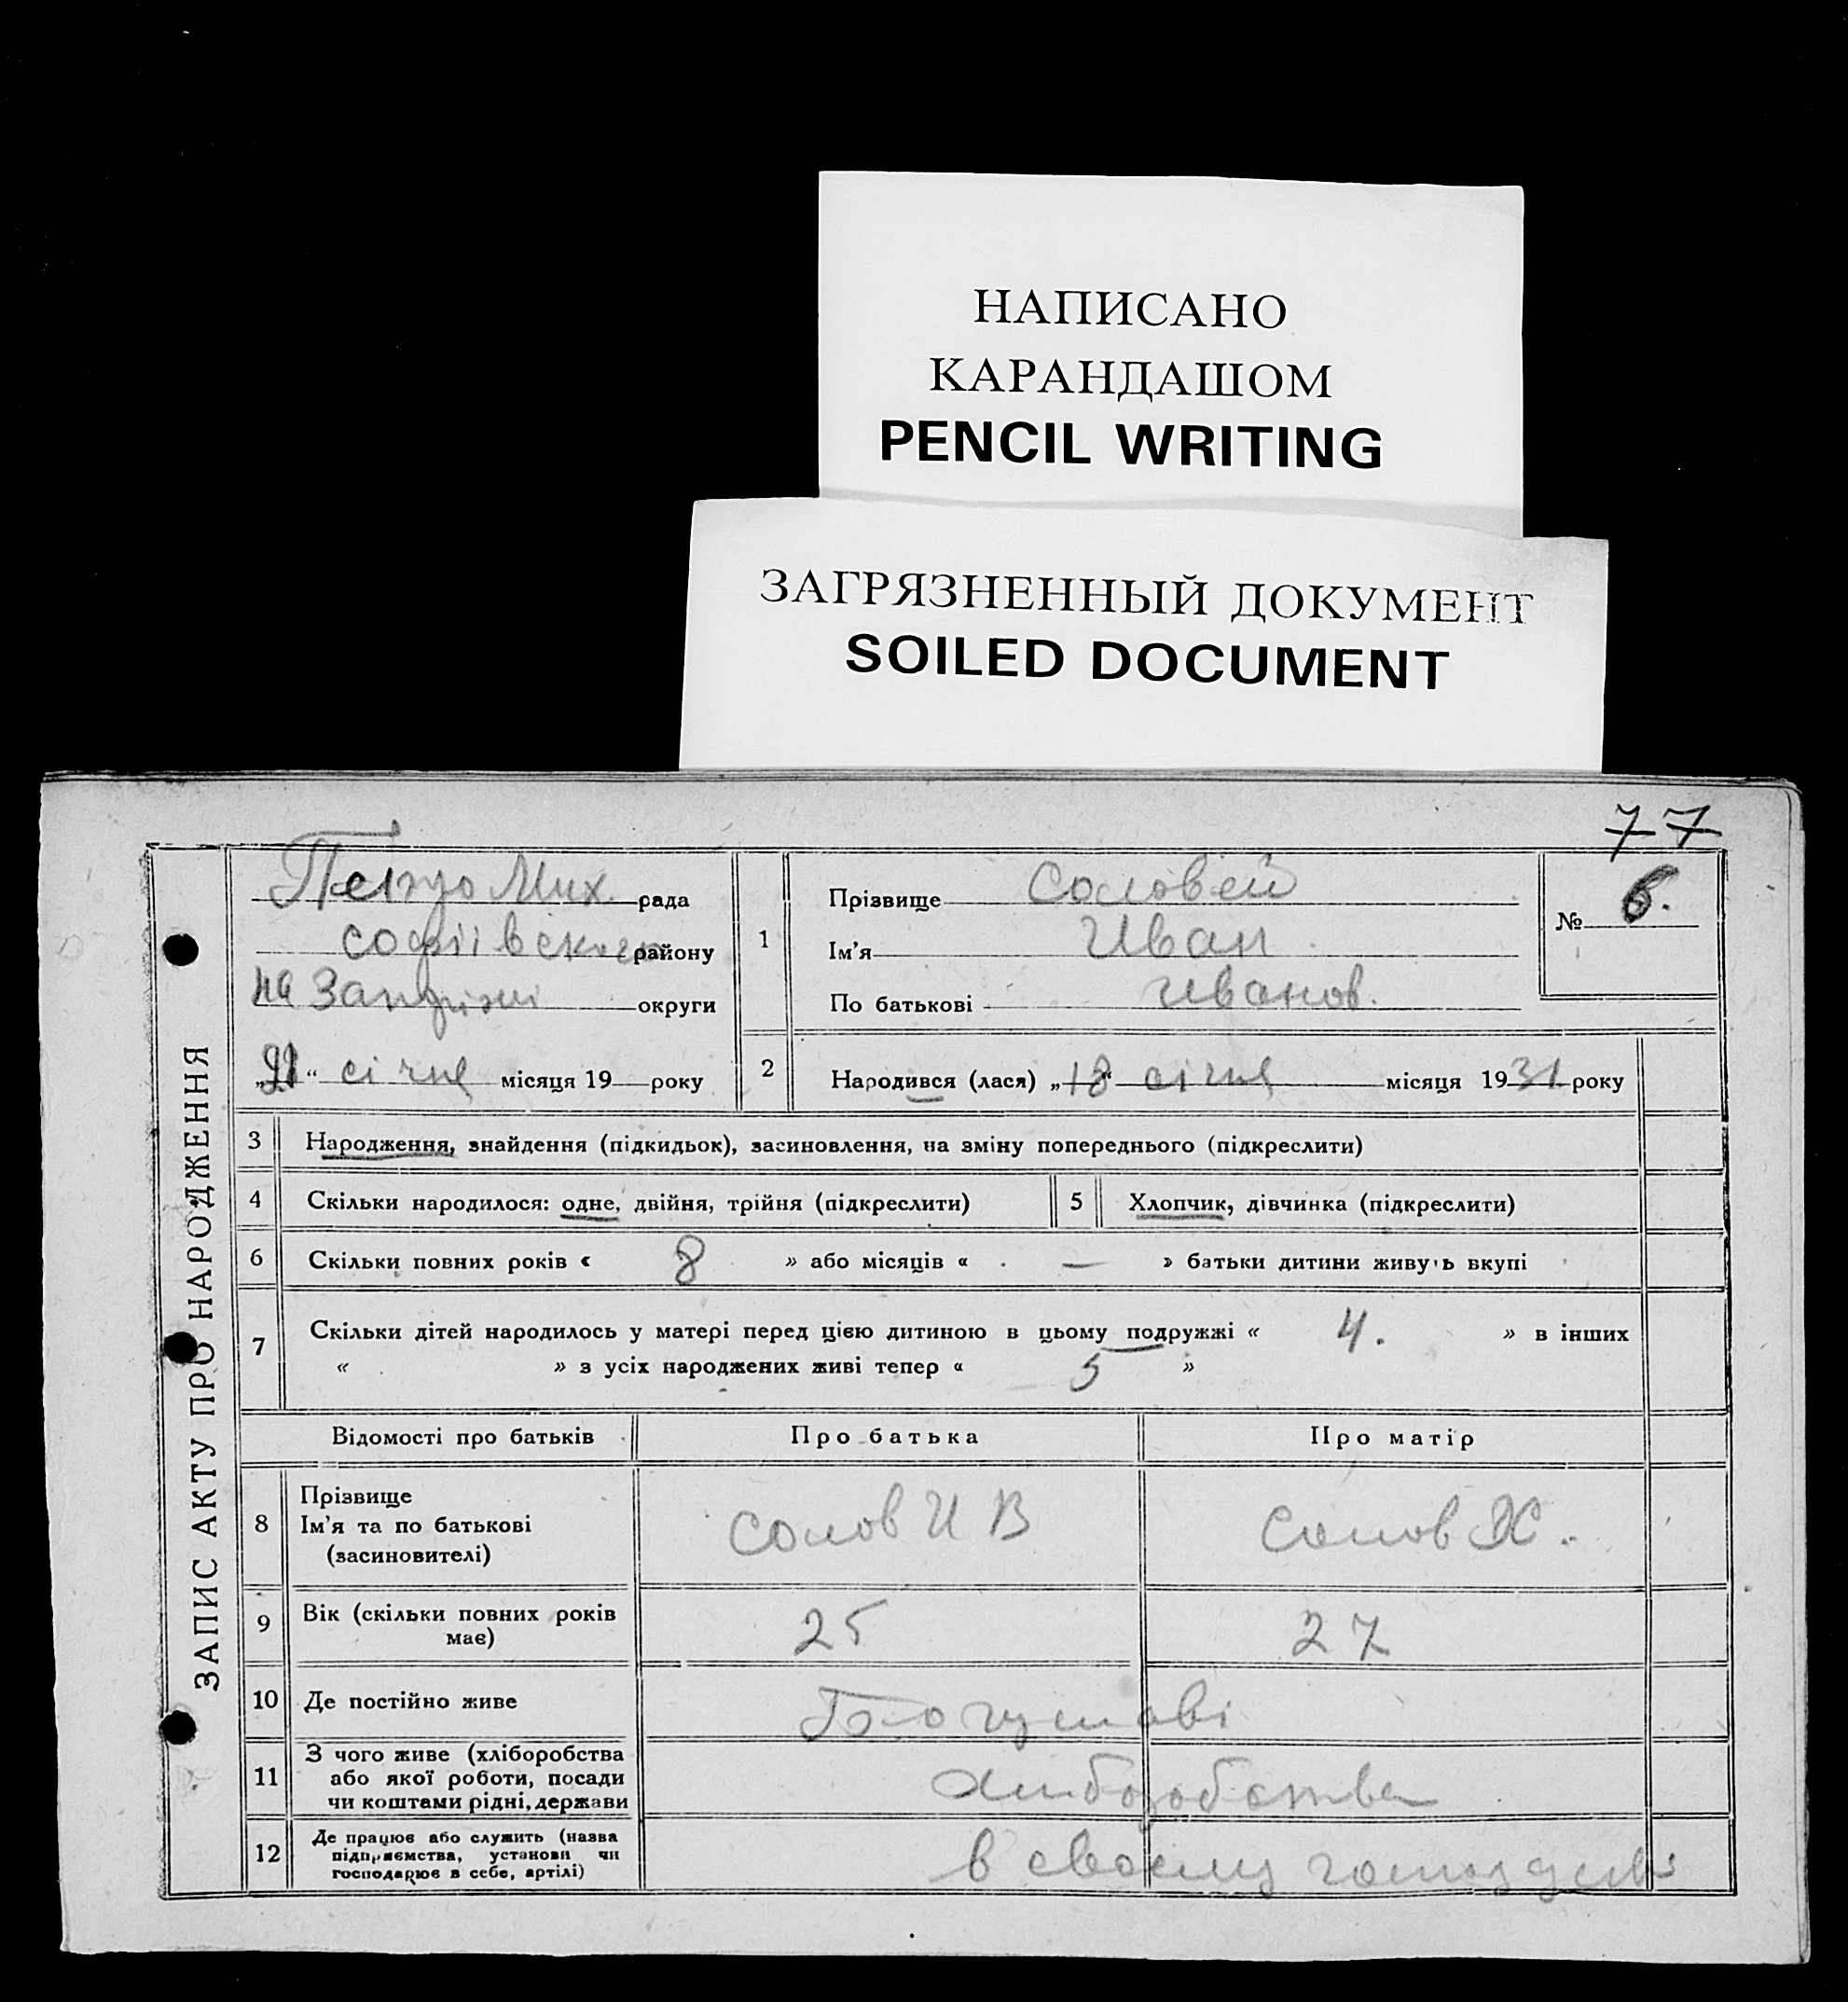 НАПИСАНО
КАРАНДАШОМ
PENCIL WRITING
ЗАГРЯЗНЕННЫЙ ДОКУМЕНТ
SOILED DOCUMENT
77
ЗАПИС АКТУ ПРО НАРОДЖЕННЯ
Петро Мих рада
софіівского району
на Запоріжі округи
„21“ січня місяця 19 року
1 Прізвище Соловей
Ім'я Иван
По батькові Иванов.
№ 6.
2 Народився (лася) „18“ січня місяця 1931 року
3 Народження, знайдення (підкидьок), засиновлення, на зміну попереднього (підкреслити)
4 Скільки народилося: одне, двійня, трійня (підкреслити) 5 Хлопчик, дівчинка (підкреслити)
6 Скільки повних років « 8 » або місяців « — » батьки дитини живуть вкупі
7 Скільки дітей народилось у матері перед цією дитиною в цьому подружжі « 4. » в інших
« » з усіх народжених живі тепер « 5 »
Відомості про батьків Про батька Про матір
8 Прізвище
Ім'я та по батькові
(засиновителі)
Солов И В Солов Х.
9 Вік (скільки повних років
має)
25 27
10 Де постійно живе
11 З чого живе (хліборобства
або якої роботи, посади
чи коштами рідні, держави
хліборобства
12 Де працює або служить (назва
підприємства, установи чи
господарює в себе, артілі)
в своему